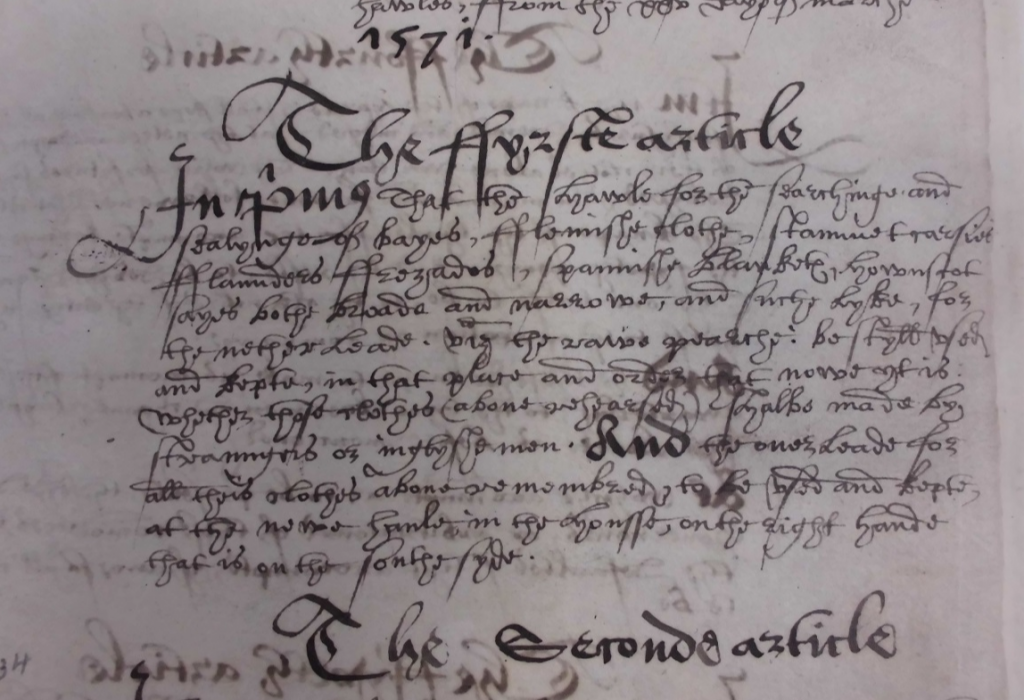 hawles, from the xxv daye of marche
1571.
The ffyrste article
In primis That the hawle for the searchinge and
sealynge of bayes, fflemisshe clothe, stammet carsies
fflaunders ffrezados, spannisshe blanketts, hownscot
sayes bothe broade and narrowe, and suche lyke, for
the nether leade. viz the rawe pearche: be styll vsed
and kepte, in that place and order that nowe yt is.
whether those clothes (above rehearsed) shalbe made by
straungers or inglysshe men. And the over leade for
all theis clothes above remembred, to be vsed and kepte,
at the newe haule, in the housse, on the right hande
that is on the southe syde.
The Seconde article